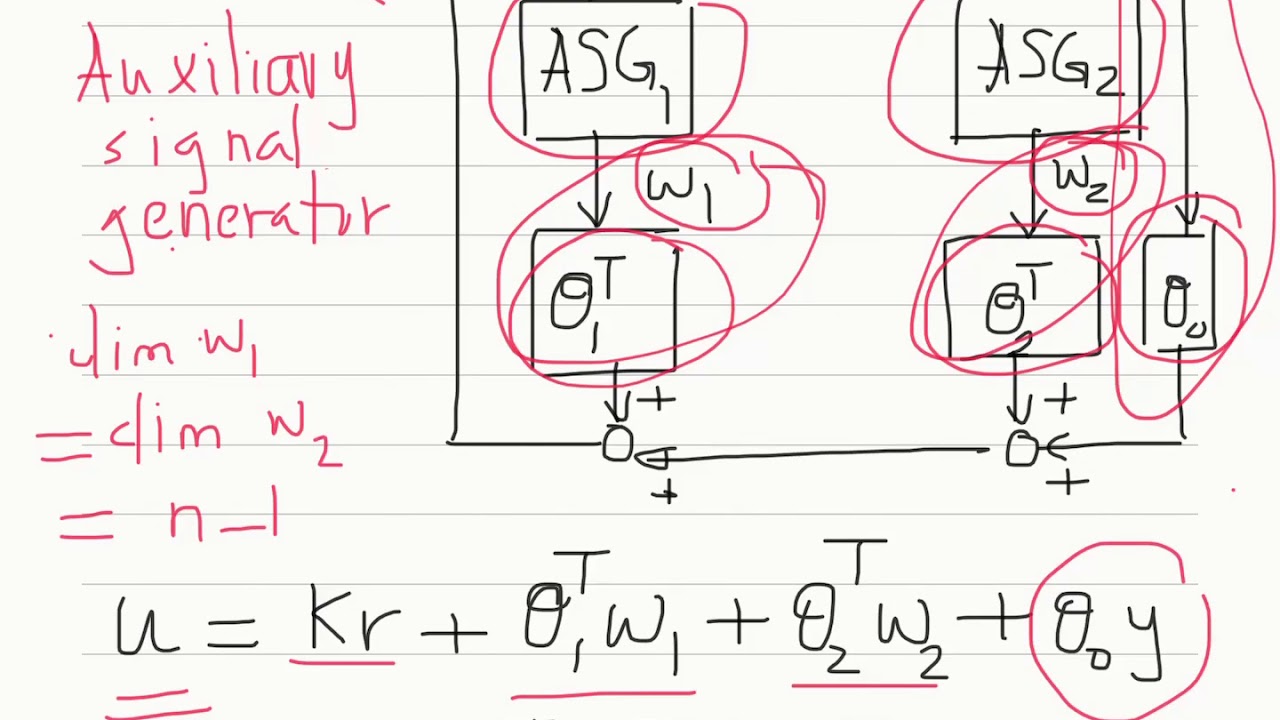 Auxiliary
signal
generator
dim w₁
= dim w₂
= n-1
ASG₁
ASG₂
w₁
w₂
θ₁ᵀ
θ₂ᵀ
θ₀
+
+
+
+
u = Kr + θ₁ᵀw₁ + θ₂ᵀw₂ + θ₀y